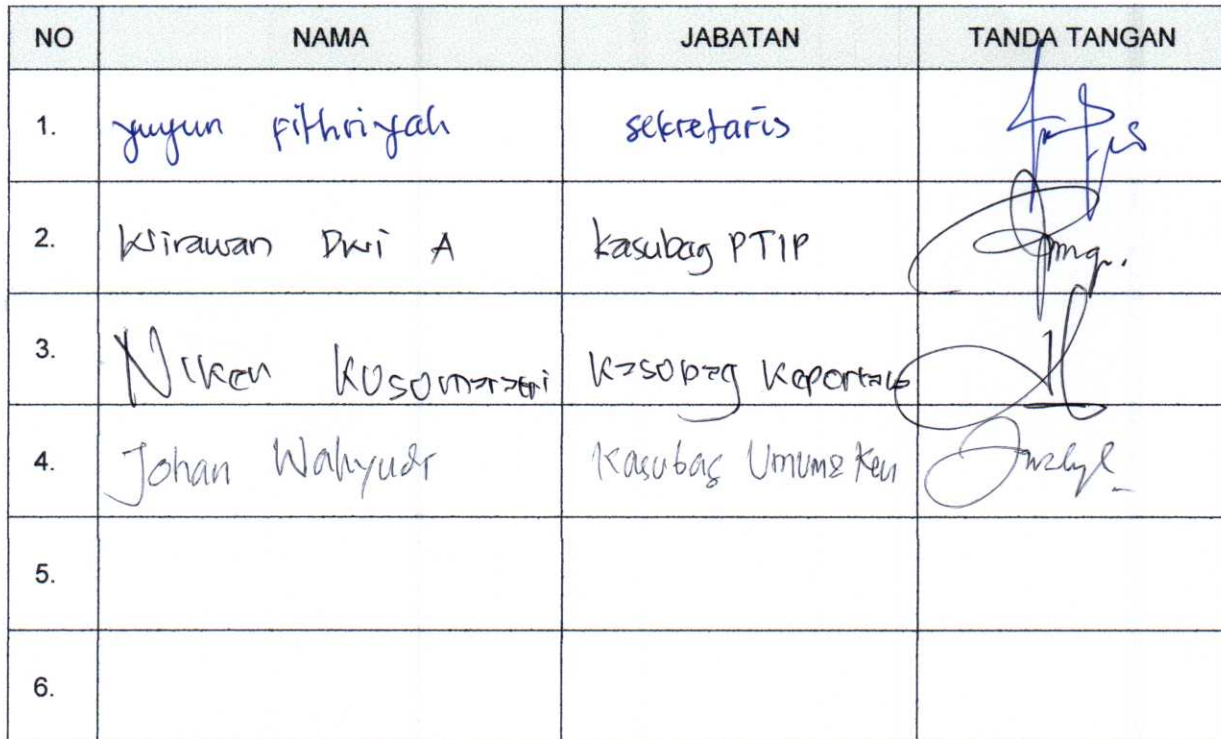 NO NAMA JABATAN TANDA TANGAN
1. yuyun Fithriyah sekretaris
2. Wirawan Dwi A Kasubag PTIP
3. Niken Kusomarastri Kasobag Keportala
4. Johan Wahyudi Kasubag Umum & Keu
5.
6.